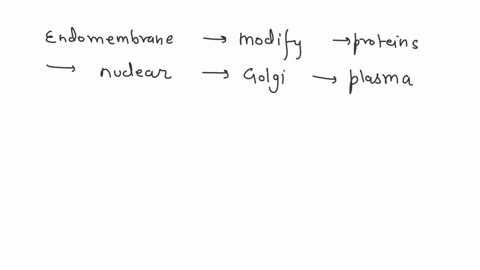 Endomembrane → modify → proteins
→ nuclear → Golgi → plasma